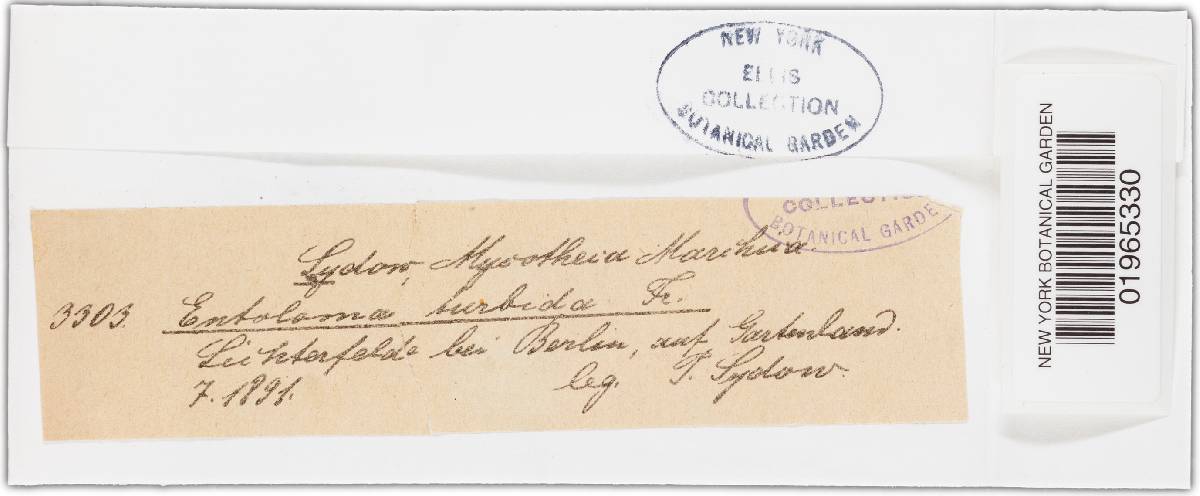 NEW YORK
ELLIS
COLLECTION
BOTANICAL GARDEN
COLLECTIO
BOTANICAL GARDE
Sydow, Mycotheca Marchica.
3303. Entoloma turbida Fr.
Lichterfelde bei Berlin, auf Gartenland.
7. 1891. leg. P. Sydow.
NEW YORK BOTANICAL GARDEN
01965330